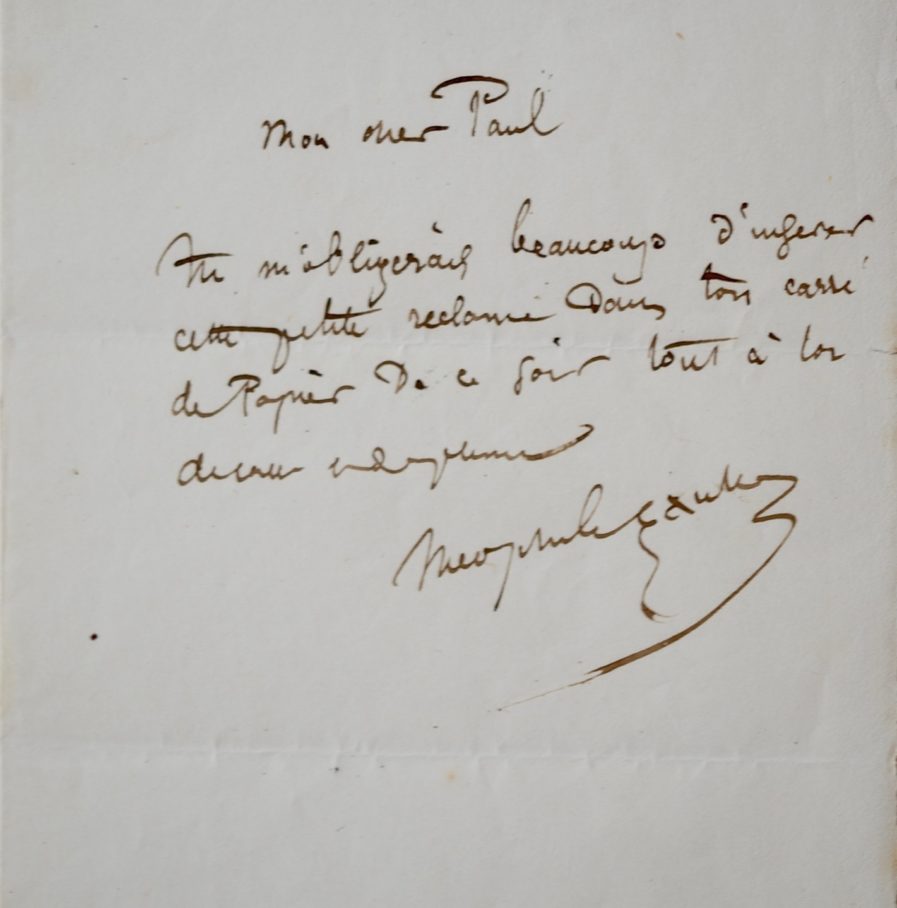 Mon cher Paul
Tu m'obligerais beaucoup d'inserer
cette petite reclame Dans ton carré
de Papier De ce soir tout à toi
de coeur et de plume
Theophile Gautier